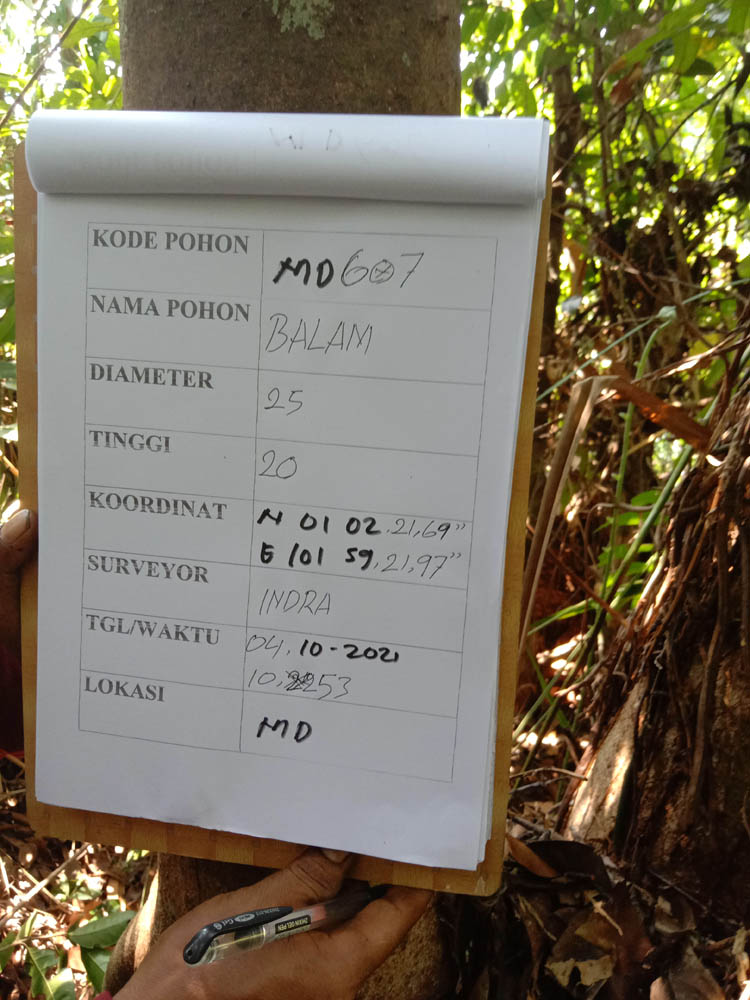 KODE POHON MD607
NAMA POHON BALAM
DIAMETER 25
TINGGI 20
KOORDINAT N 01 02.21,69"
E 101 59.21,97"
SURVEYOR INDRA
TGL/WAKTU 04.10-2021
10.53
LOKASI MD